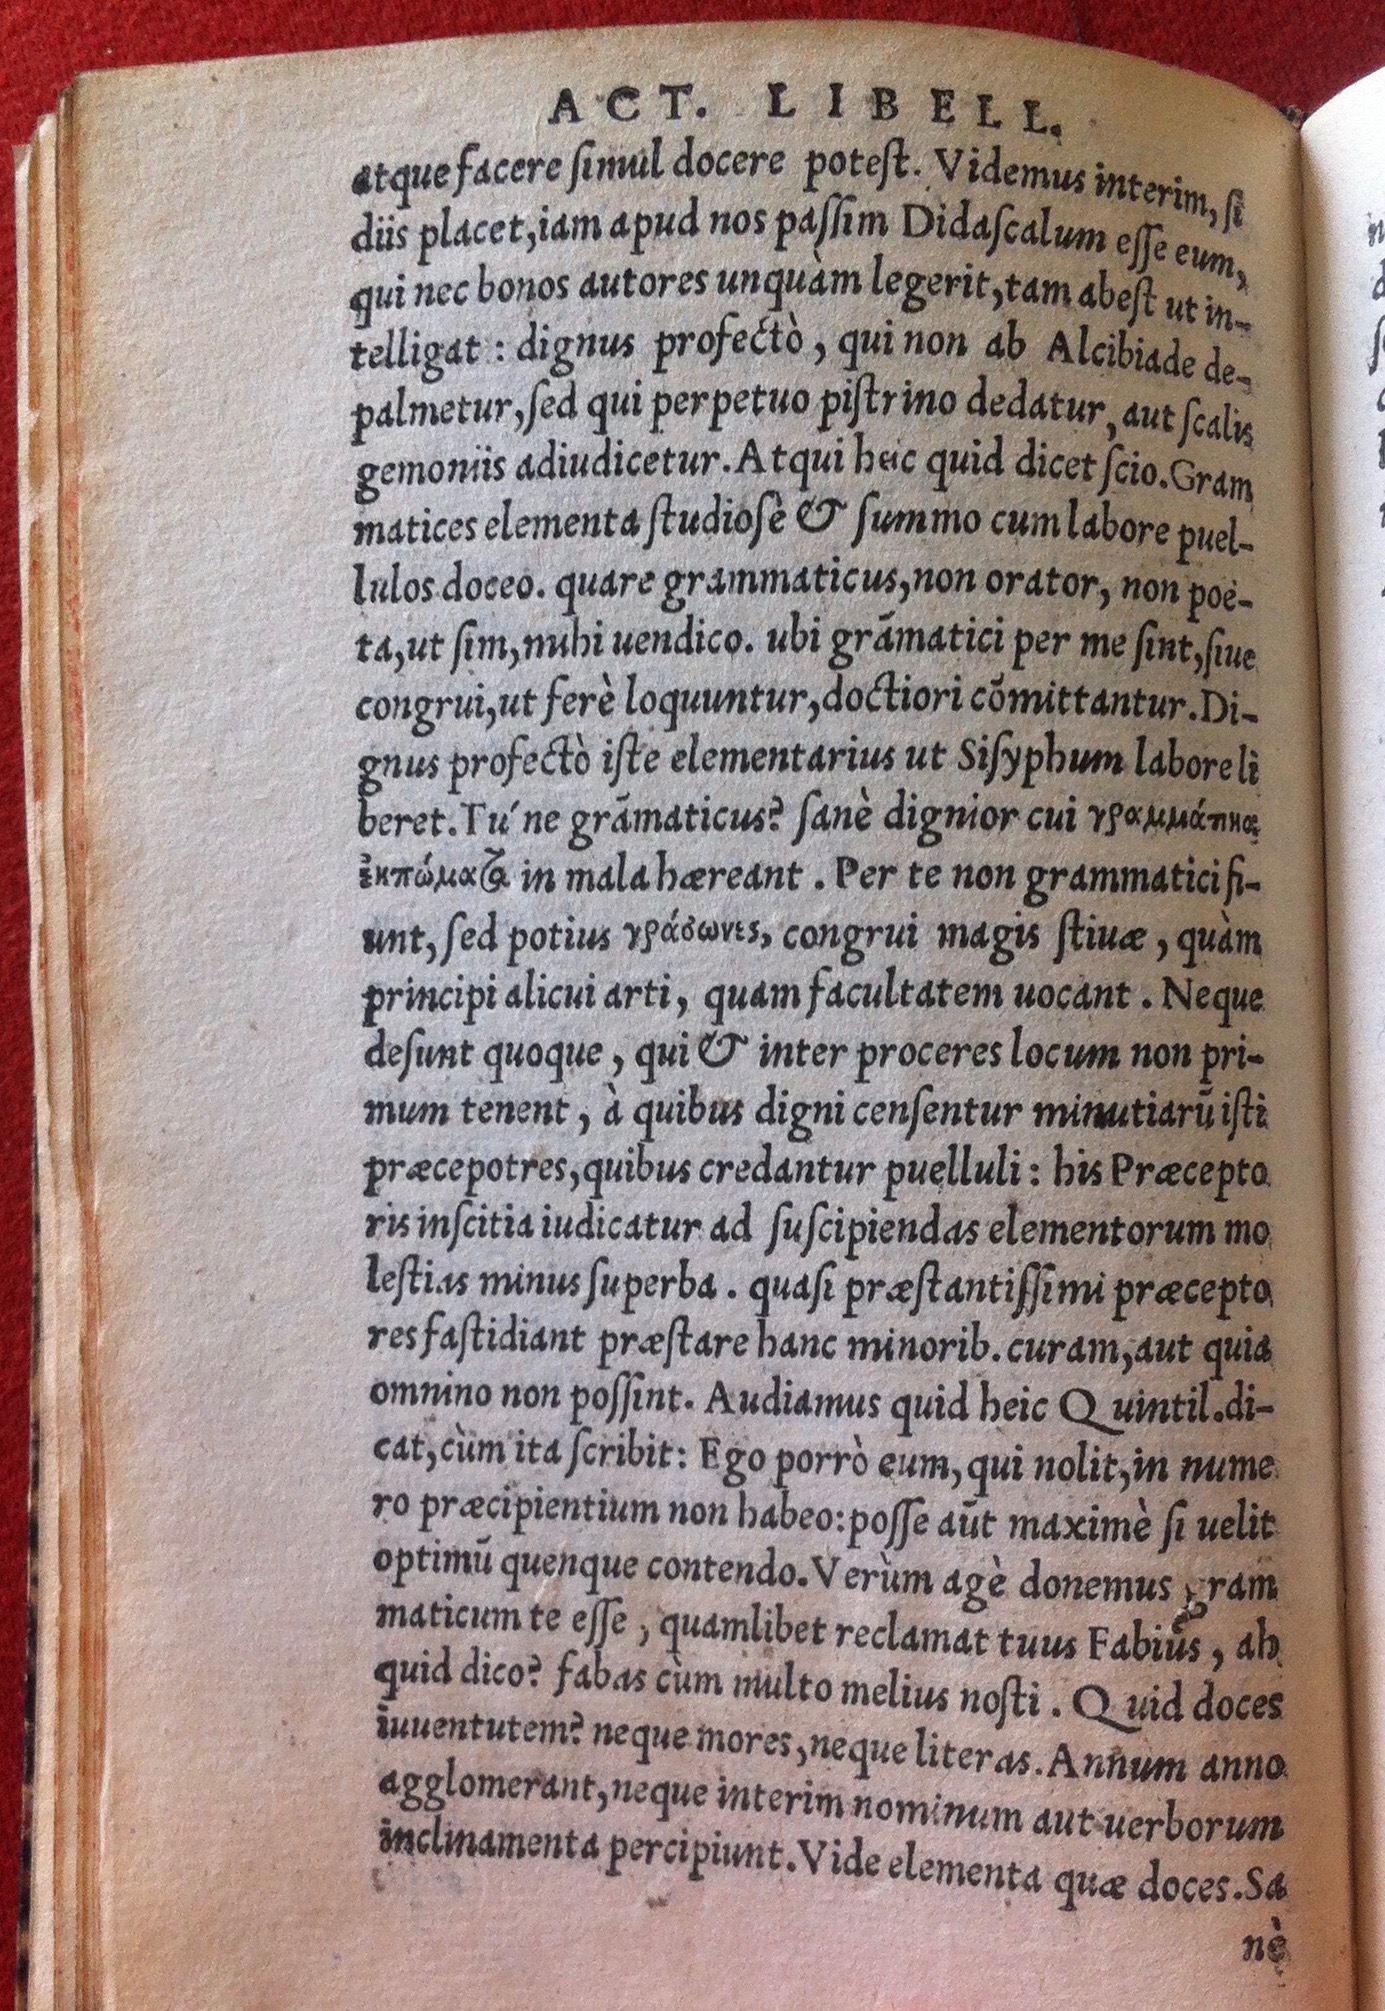 ACT. LIBELL.
atque facere ſimul docere poteſt. Videmus interim, ſi
diis placet, iam apud nos paſſim Didaſcalum eſſe eum,
qui nec bonos autores unquàm legerit, tam abeſt ut in-
telligat : dignus profectò, qui non ab Alcibiade de-
palmetur, ſed qui perpetuo piſtrino dedatur, aut ſcalis
gemoniis adiudicetur. Atqui heic quid dicet ſcio. Gram
matices elementa ſtudioſè & ſummo cum labore puel-
lulos doceo. quare grammaticus, non orator, non poë-
ta, ut ſim, mihi uendico. ubi grãmatici per me ſint, ſiue
congrui, ut ferè loquuntur, doctiori cõmittantur. Di-
gnus profectò iſte elementarius ut Siſyphum labore li
beret. Tú ne grãmaticus? ſanè dignior cui
in mala hæreant . Per te non grammatici fi-
unt, ſed potius γράσωνες, congrui magis ſtiuæ, quàm
principi alicui arti, quam facultatem uocant . Neque
deſunt quoque, qui & inter proceres locum non pri-
mum tenent, à quibus digni cenſentur minutiarũ iſti
præcepotres, quibus credantur puelluli : his Præcepto
ris inſcitia iudicatur ad ſuſcipiendas elementorum mo
leſtias minus ſuperba . quaſi præſtantiſſimi præcepto
res faſtidiant præſtare hanc minorib. curam, aut quia
omnino non poſſint. Audiamus quid heic Quintil. di-
cat, cùm ita ſcribit : Ego porrò eum, qui nolit, in nume
ro præcipientium non habeo: poſſe aũt maximè ſi uelit
optimũ quenque contendo. Verùm agè donemus gram
maticum te eſſe, quamlibet reclamat tuus Fabius, ah
quid dico? fabas cùm multo melius noſti . Quid doces
iuuentutem? neque mores, neque literas. Annum anno
agglomerant, neque interim nominum aut uerborum
inclinamenta percipiunt. Vide elementa quæ doces. Sa
nè